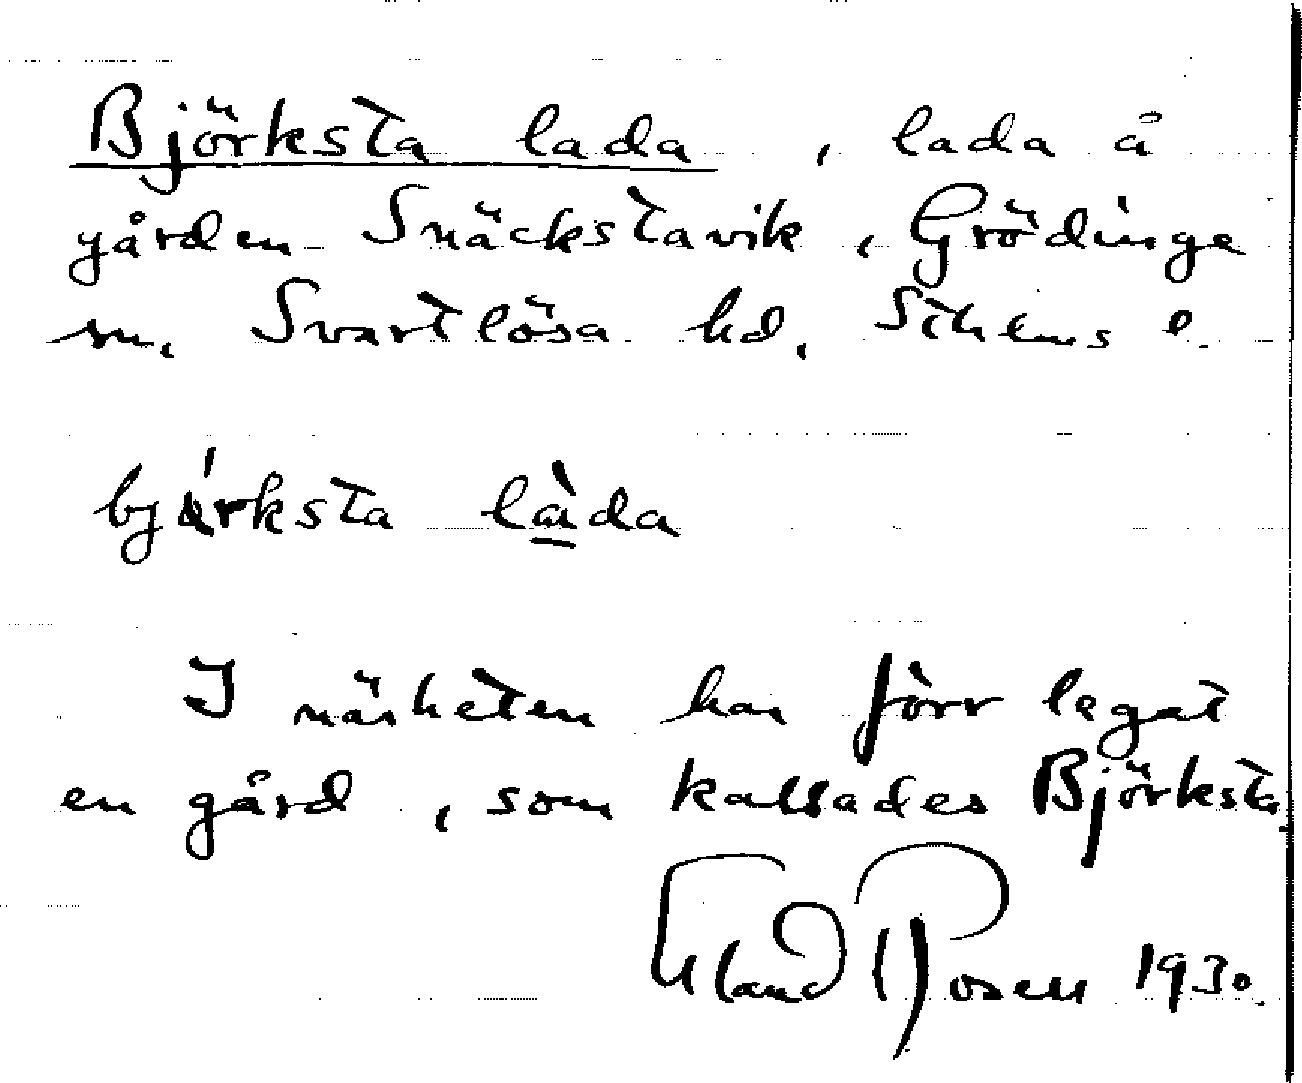 Björksta lada, lada å
gården Snäckstavik, Grödinge
sn, Svartlösa hd, Sthlms l.
làda
I närheten har förr legat
en gård, som kallades Björksta.
Erland Rosell 1930.